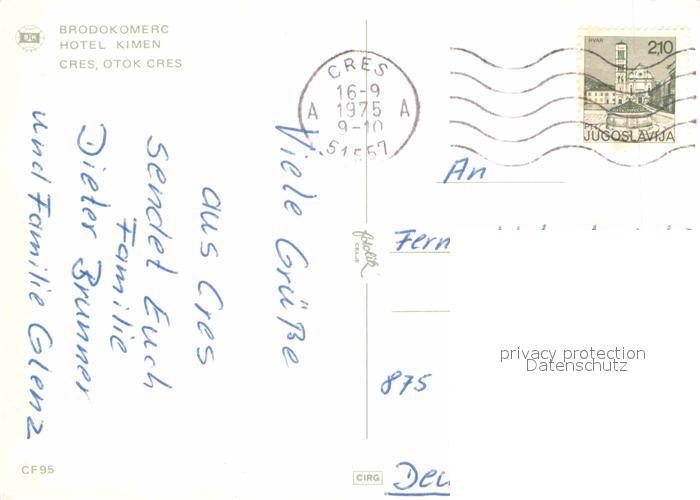 BRODOKOMERC
HOTEL KIMEN
CRES, OTOK CRES
Viele Grüße
aus Cres
sendet Euch
Familie
Dieter Brunner
und Familie Glenz
CF95
CRES
16-9
A 1975 A
9-10
51557
HVAR
2,10
JUGOSLAVIJA
An
875
fotolik
CELJE
CIRG
privacy protection
Datenschutz